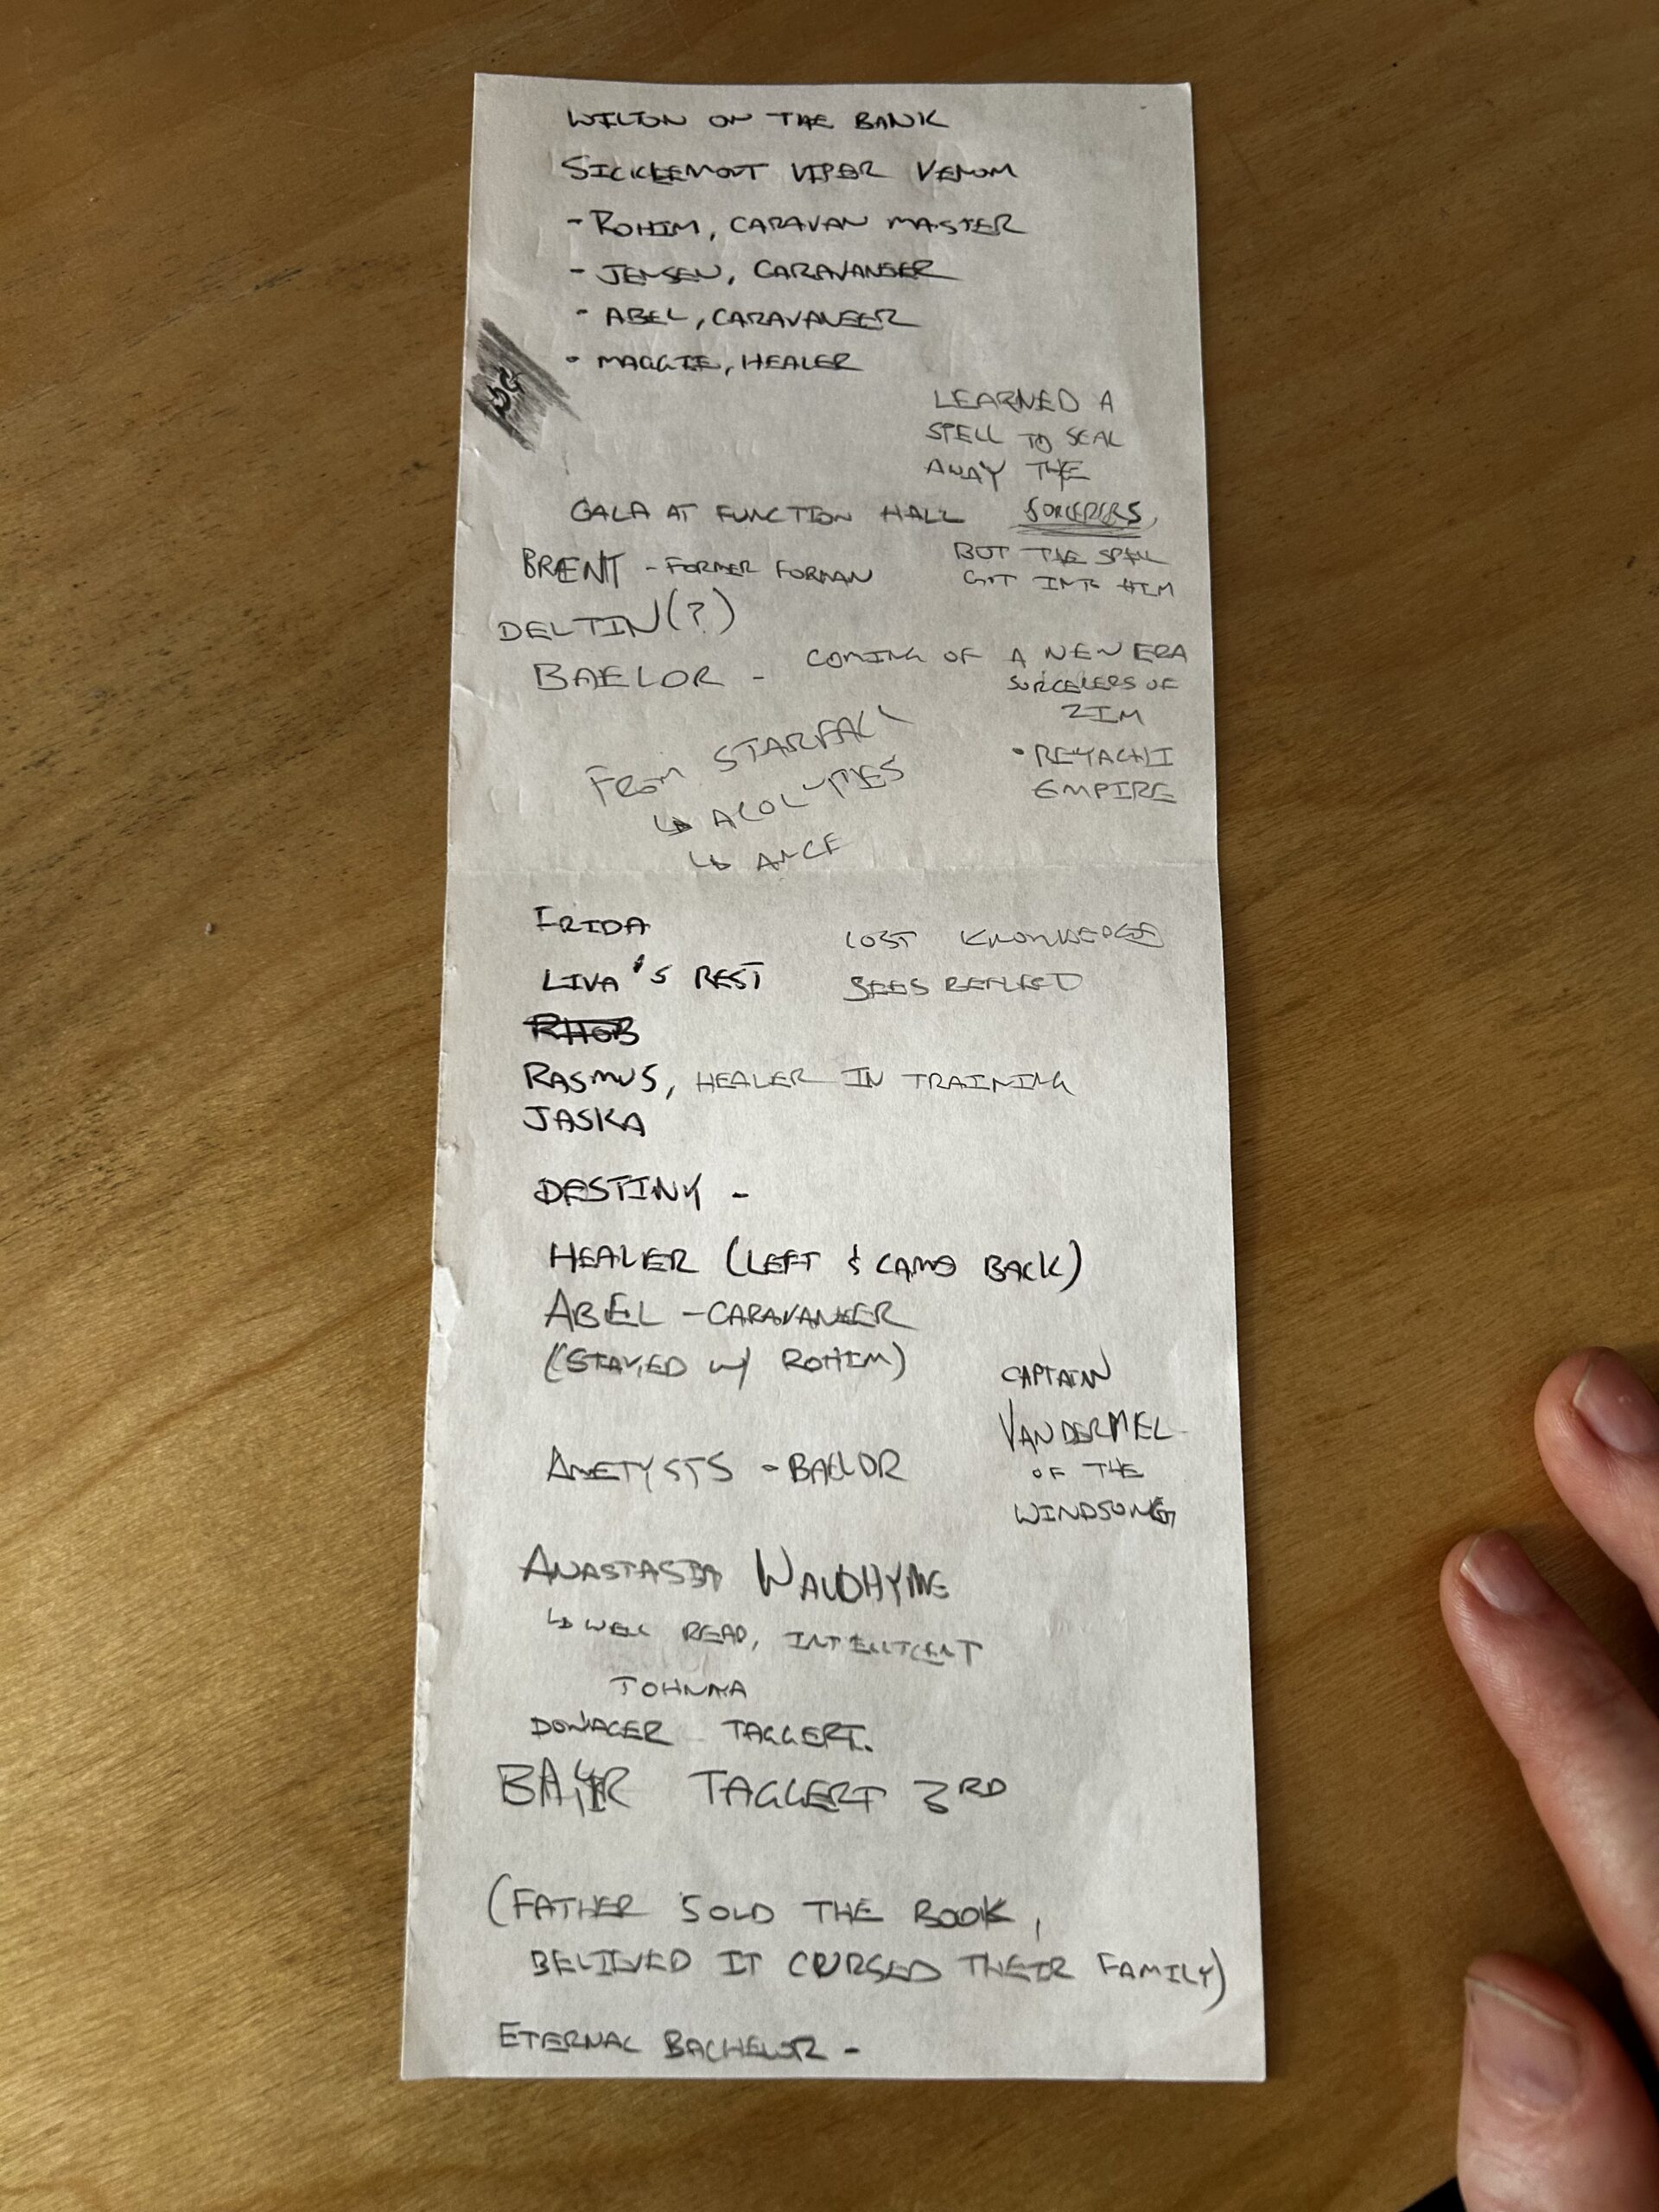 WILTON ON THE BANK
SICKLEMOUT VIPER VENOM
- ROHIM, CARAVAN MASTER
- JENSEN, CARAVANEER
- ABEL, CARAVANEER
- MAGGIE, HEALER
LEARNED A
SPELL TO SEAL
AWAY THE
SORCERERS,
BUT THE SPELL
GOT INTO HIM
GALA AT FUNCTION HALL
BRENT - FORMER FORMAN
DELTIN(?)
BAELOR - COMING OF A NEW ERA
SORCERERS OF
ZIM
• REYACHI
EMPIRE
FROM STARFALL
↳ ACOLYTES
↳
FRIDA
LIVA'S REST
LOST KNOWLEDGE
SEES REFLECT
RHOB
RASMUS, HEALER IN TRAINING
JASKA
DESTINY -
HEALER (LEFT & CAME BACK)
ABEL - CARAVANEER
(STAYED W/ ROHIM)
CAPTAIN
VANDERMEL
OF THE
WINDSONG
AMETYSTS - BAELOR
ANASTASIA WALDHYME
↳ WELL READ, INTELLIGENT
JOHNNA
DOWAGER TAGGERT.
TAGGERT 3RD
(FATHER SOLD THE BOOK,
BELIEVED IT CURSED THEIR FAMILY)
ETERNAL BACHELOR -